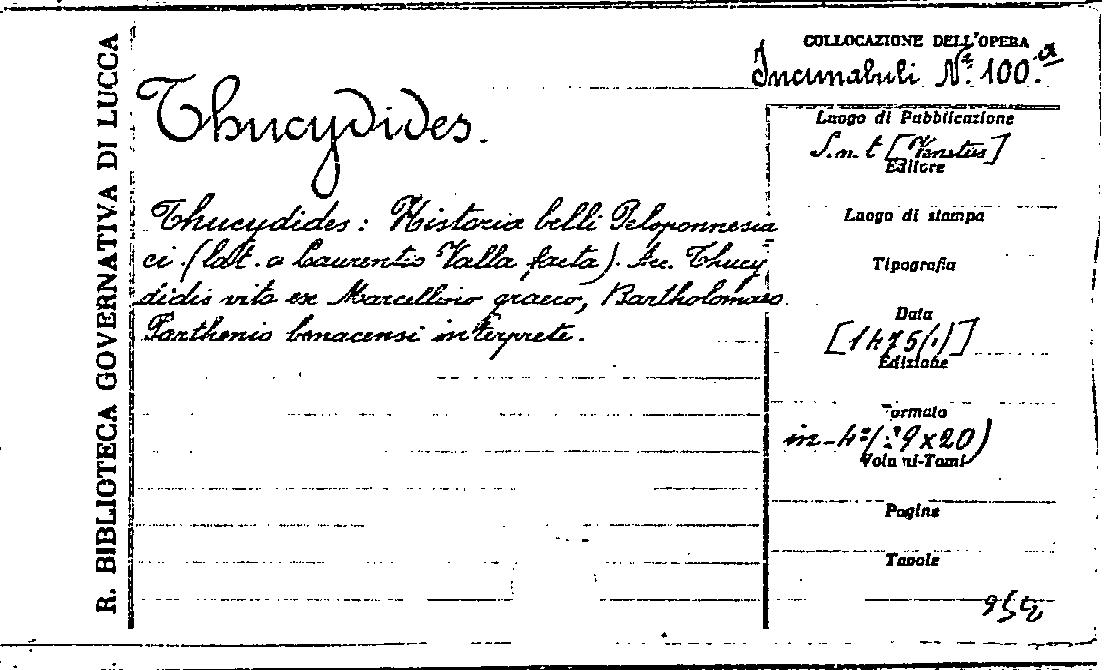 R. BIBLIOTECA GOVERNATIVA DI LUCCA
COLLOCAZIONE DELL'OPERA
Incunabuli N.º 100.a
Thucydides.
Thucydides: Historia belli Peloponnesia
ci. (lat. a Laurentio Valla facta). Acc. Thucy
didis vita ex Marcellino graeco, Bartholomaeo
Parthenio benacensi interprete.
Luogo di Pubblicazione
S.n.t [Venetiis]
Editore
Luogo di stampa
Tipografia
Data
[1475(?)]
Edizione
Formato
in-4º (29x20)
Volumi-Tomi
Pagine
Tavole